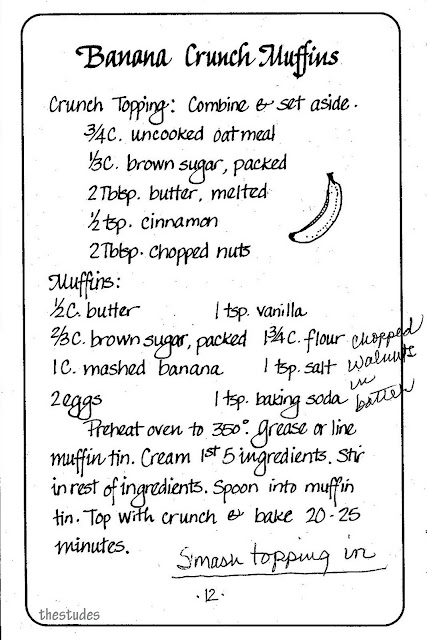 Banana Crunch Muffins
Crunch Topping: Combine & set aside.
3/4 C. uncooked oatmeal
1/3 C. brown sugar, packed
2 Tblsp. butter, melted
1/2 tsp. cinnamon
2 Tblsp. chopped nuts
Muffins:
1/2 C. butter 1 tsp. vanilla
2/3 C. brown sugar, packed 1 3/4 C. flour
1 C. mashed banana 1 tsp. salt
2 eggs 1 tsp. baking soda
chopped
walnuts
in
batter
Preheat oven to 350°. Grease or line
muffin tin. Cream 1st 5 ingredients. Stir
in rest of ingredients. Spoon into muffin
tin. Top with crunch & bake 20-25
minutes.
Smash topping in
·12·
thestudes